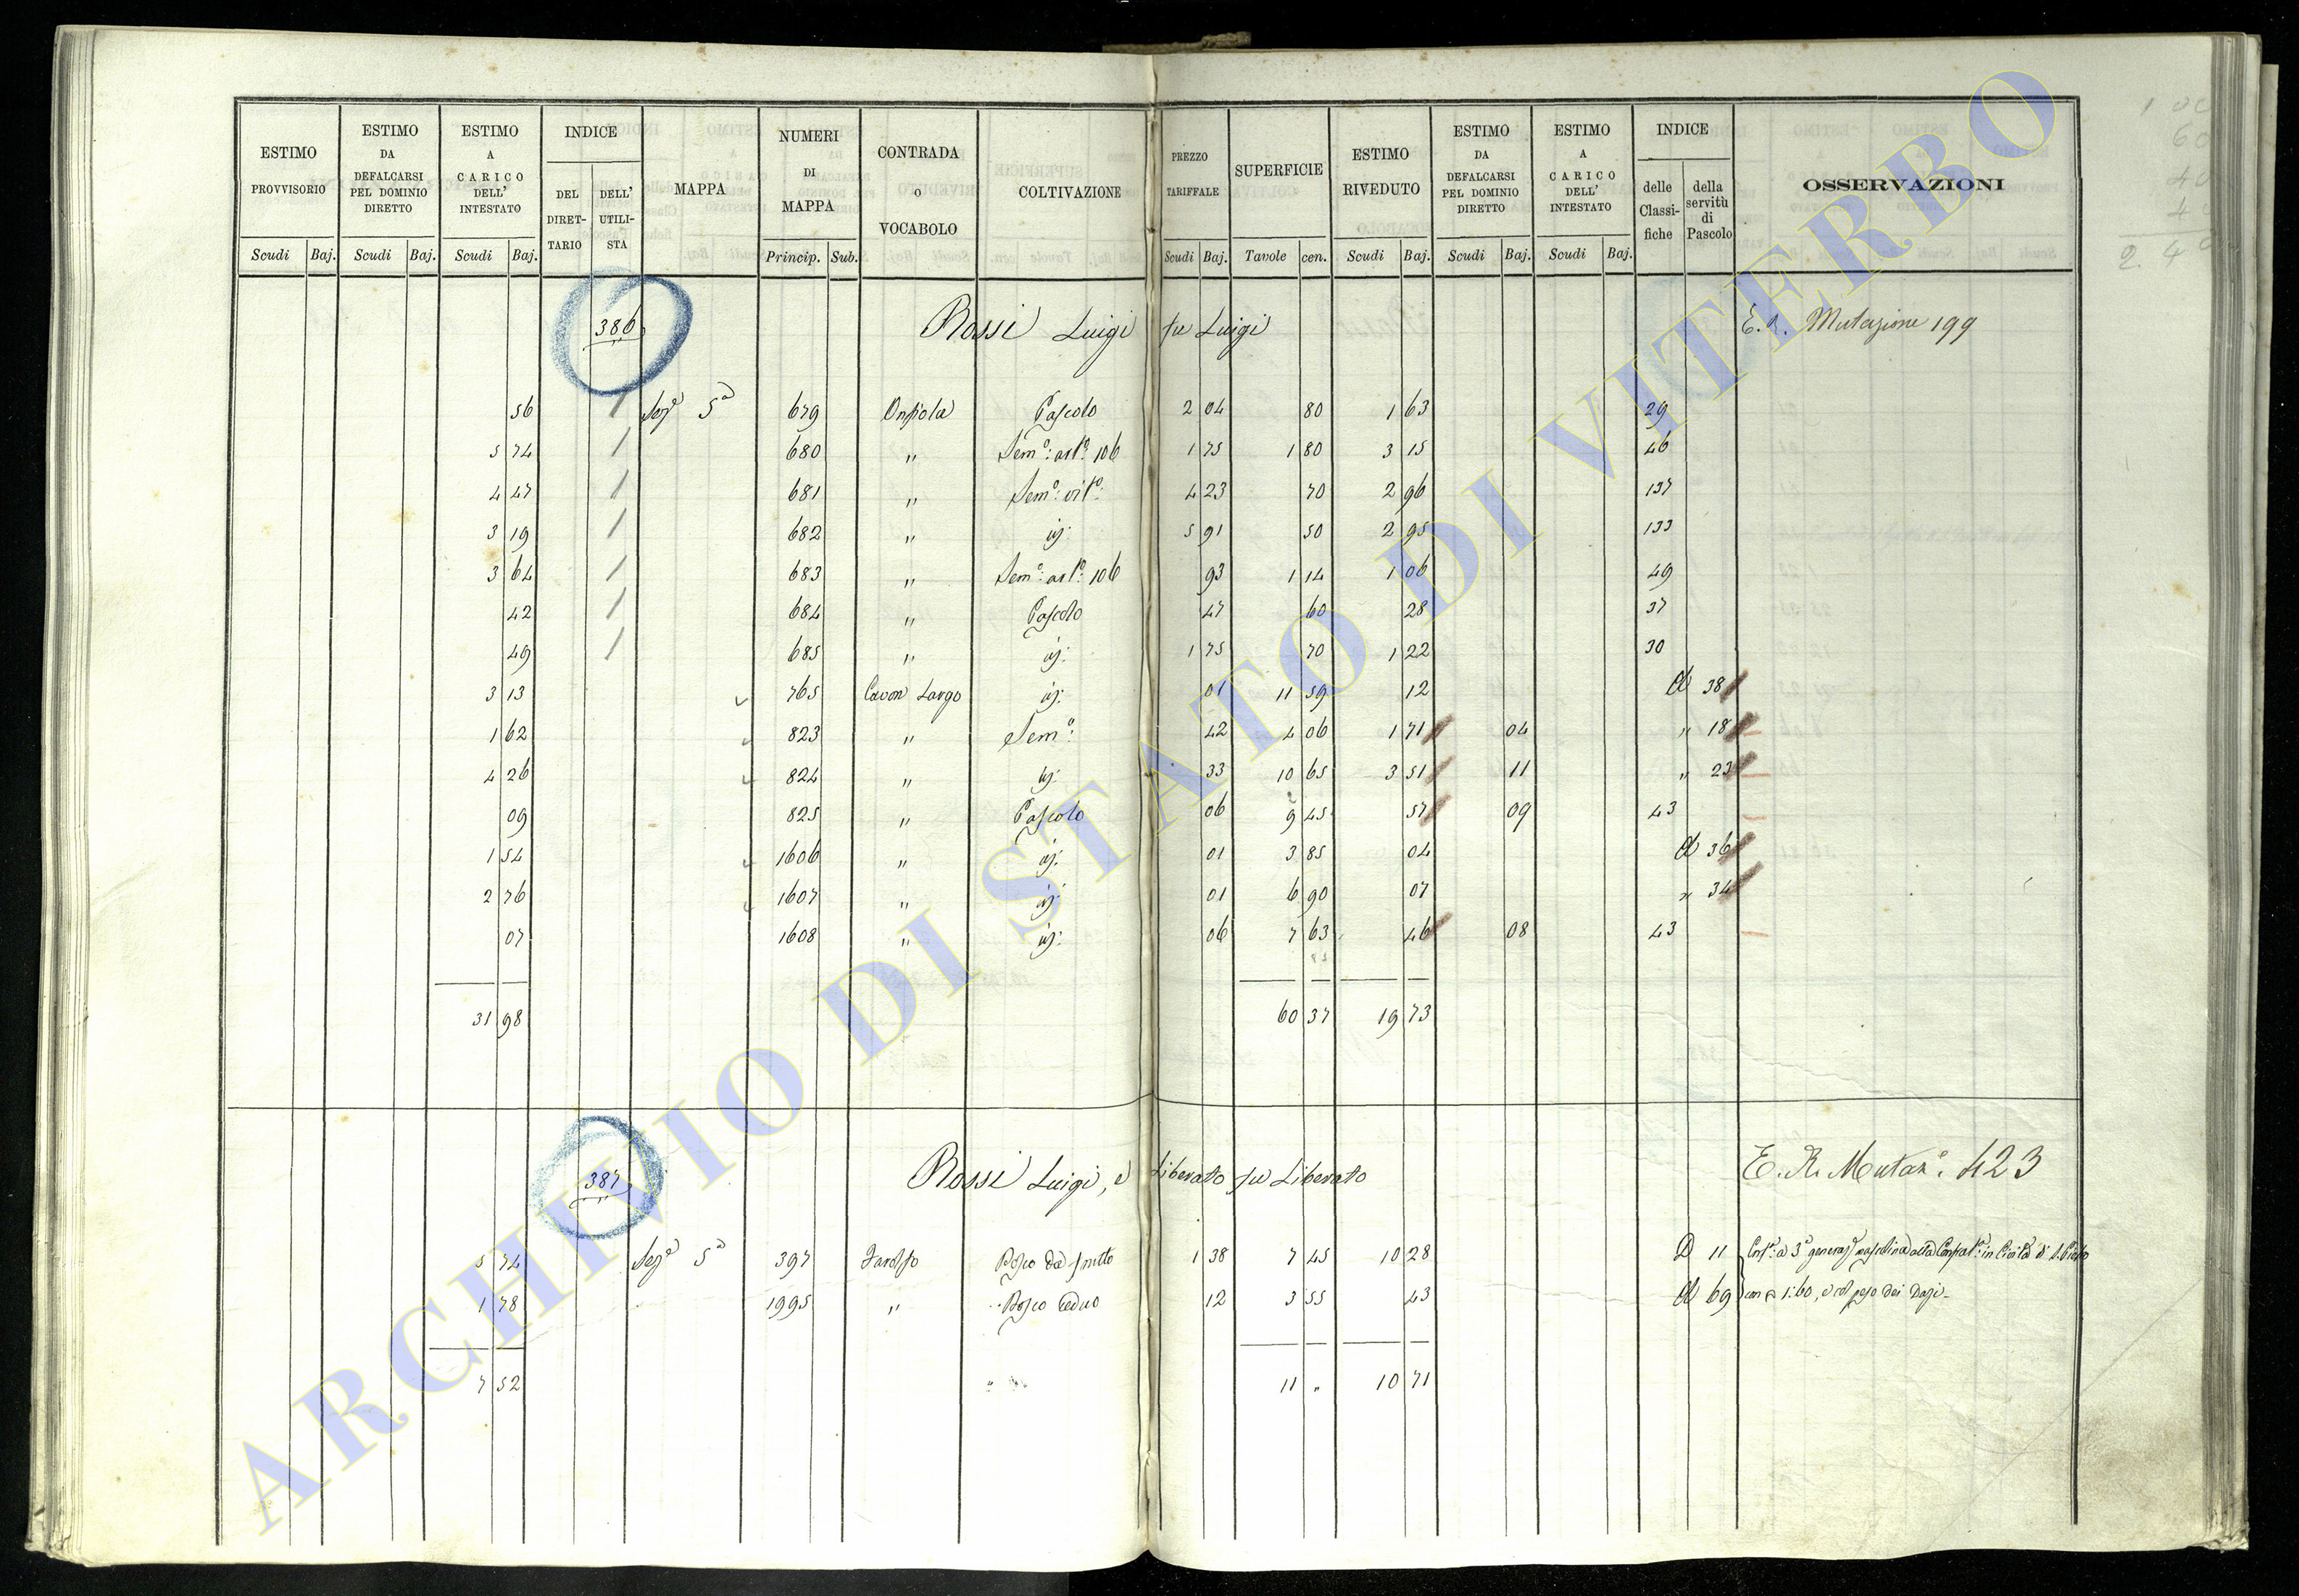 ESTIMO PROVVISORIO Scudi Baj. ESTIMO DA DEFALCARSI PEL DOMINIO DIRETTO Scudi Baj. ESTIMO A CARICO DELL' INTESTATO Scudi Baj. INDICE DEL DIRETTARIO DELL' UTILISTA MAPPA NUMERI DI MAPPA Princip. Sub. CONTRADA o VOCABOLO COLTIVAZIONE PREZZO TARIFFALE Scudi Baj. SUPERFICIE Tavole cen. ESTIMO RIVEDUTO Scudi Baj. ESTIMO DA DEFALCARSI PEL DOMINIO DIRETTO Scudi Baj. ESTIMO A CARICO DELL' INTESTATO Scudi Baj. INDICE delle Classifiche della servitù di Pascolo OSSERVAZIONI
1 00
60
40
40
2 40
386 Rossi Luigi fu Luigi E. R. Mutazione 199
56 / Sez.e 5a 679 Pascolo 2 04 80 1 63 29
5 74 / 680 " Sem.o: art.o: 106 1 75 1 80 3 15 46
4 47 / 681 " Sem.o: vit.o: 4 23 70 2 96 137
3 19 / 682 " id: 5 91 50 2 95 133
3 64 / 683 " Sem.o: art.o: 106 93 1 14 1 06 49
42 / 684 " Pascolo 47 60 28 37
49 / 685 " id: 1 75 70 1 22 30
3 13 765 Cavon Largo id: 01 11 59 12 A 38
1 62 823 " Sem.o: 42 4 06 1 71 04 " 18
4 26 824 " id: 33 10 65 3 51 11 " 23
09 825 " Pascolo 06 9 45 57 09 43
1 54 1606 " id: 01 3 85 04 A 36
2 76 1607 " id: 01 6 90 07 " 34
07 1608 " id: 06 7 63 46 08 43
31 98 60 37 19 73
387 Rossi Luigi, e Liberato fu Liberato E. R. Mutaz.e: 423
5 74 Sez.e 5a 397 Bosco da frutto 1 38 7 45 10 28 D 11 a 3a
1 78 1995 " Bosco Ceduo 12 3 55 43 A 69 con 1:60, e col peso dei Dazi-
7 52 11 " 10 71
ARCHIVIO DI STATO DI VITERBO